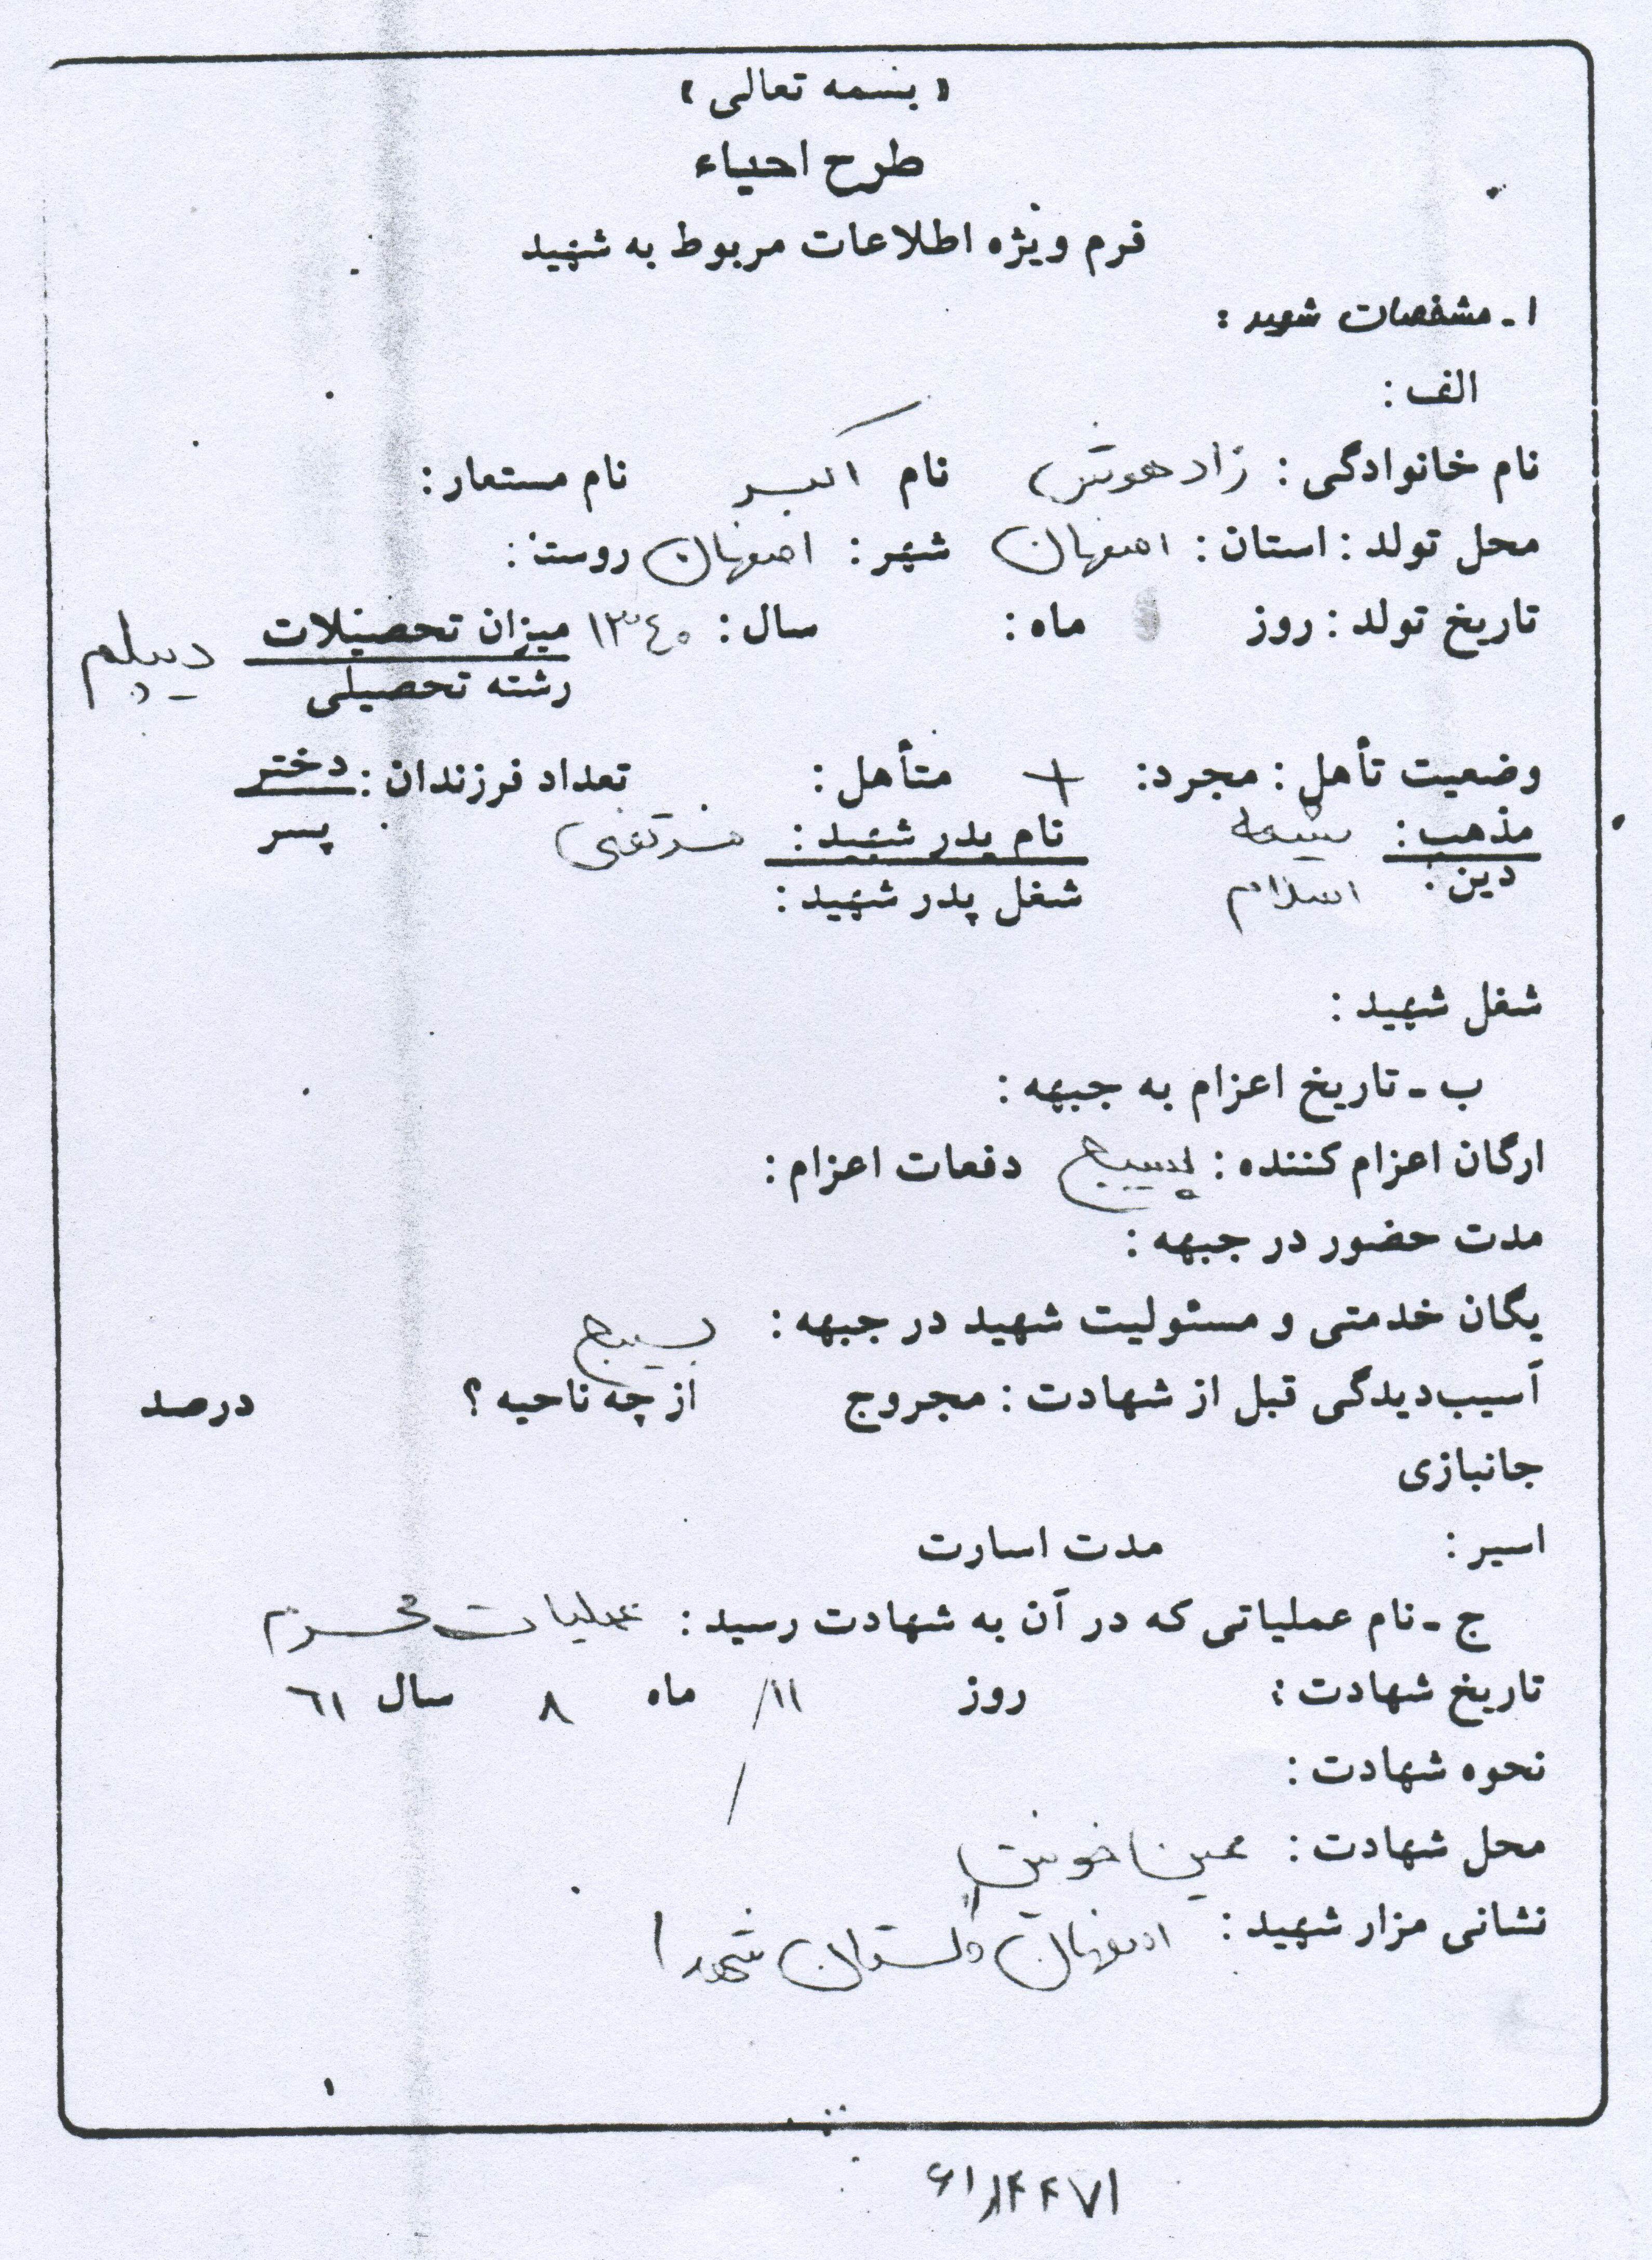 « بسمه تعالی »
طرح احیاء
فرم ویژه اطلاعات مربوط به شهید
۱ ـ مشخصات شهید :
الف :
نام خانوادگی : زاد هوش نام اکبر نام مستعار :
محل تولد : استان : اصفهان شهر : اصفهان روستا :
تاریخ تولد : روز ماه : سال : ۱۳٤۰ میزان تحصیلات دیپلم
رشته تحصیلی
وضعیت تأهل : مجرد : + متأهل : تعداد فرزندان : دختر
مذهب : شیعه نام پدر شهید : مرتضی پسر
دین : اسلام شغل پدر شهید :
شغل شهید :
ب ـ تاریخ اعزام به جبهه :
ارگان اعزام کننده : بسیج دفعات اعزام :
مدت حضور در جبهه :
یگان خدمتی و مسئولیت شهید در جبهه : بسیج
آسیب‌دیدگی قبل از شهادت : مجروح از چه ناحیه ؟ درصد
جانبازی
اسیر : مدت اسارت
ج ـ نام عملیاتی که در آن به شهادت رسید : عملیات محرم
تاریخ شهادت : روز ۱۱/ ماه ۸ سال ٦۱
نحوه شهادت : /
محل شهادت : عین خوش
نشانی مزار شهید : اصفهان گلستان شهدا